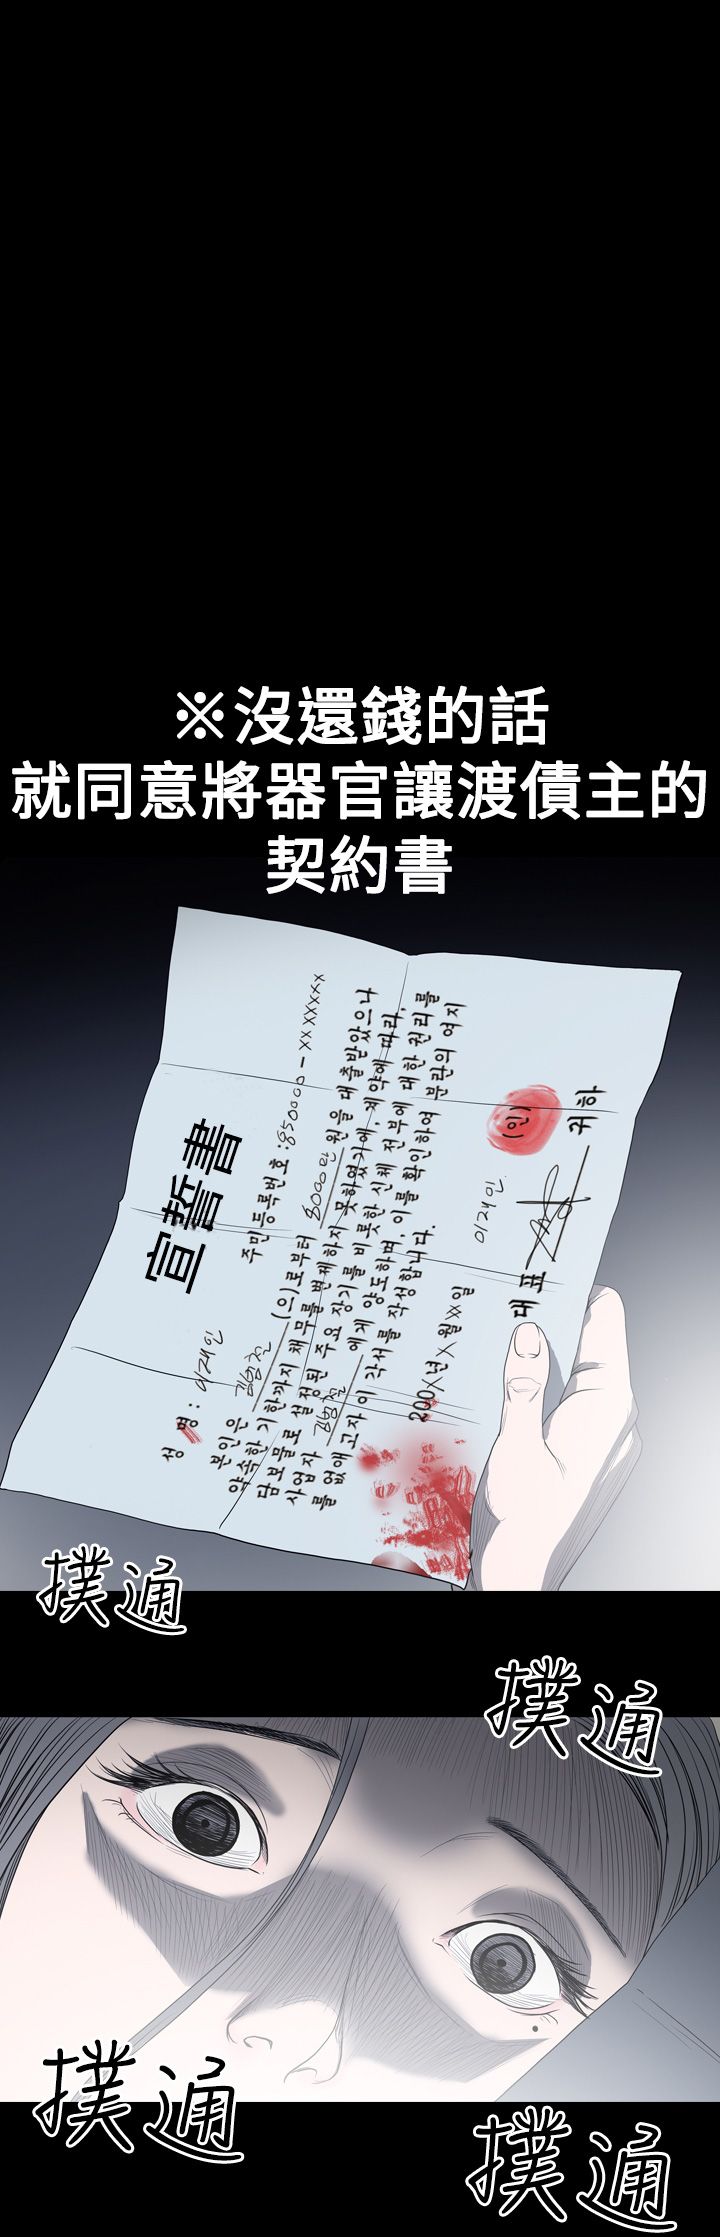 ※沒還錢的話
就同意將器官讓渡債主的
契約書
宣誓書
성 명 : 이재인
주민등록번호 : 850000-xxxxxxx
본인은 김범진 (으)로부터 8000만 원을 대출받았으나
약속한 기한까지 채무를 변제하지 못하였기에, 계약에 따라,
담보물로 설정된 주요 장기를 비롯한 신체 전부에 대한 권리를
사업자 김범진 에게 양도하며, 이를 확인하여 분란의 여지
를 없애고자 이 각서를 작성합니다.
200X년 X월XX일
이재인 (인)
대표 귀하
撲通
撲通
撲通
撲通